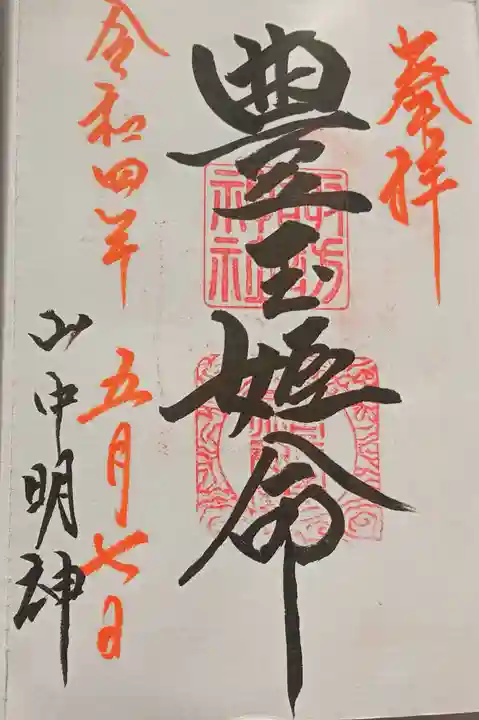 奉拝
豊玉姫命
諏訪神社
令和四年
五月七日
山中明神